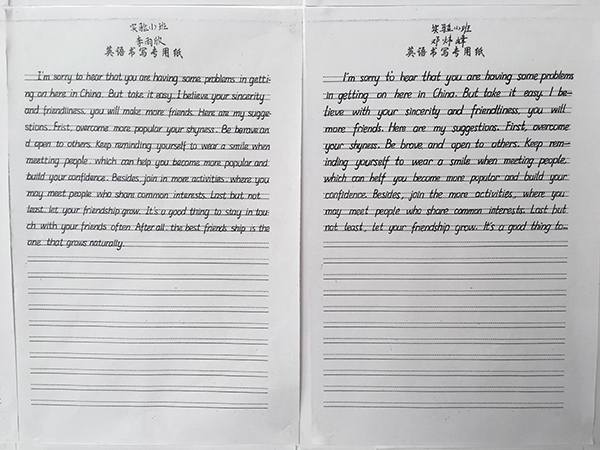 实验小班
李雨欣
英语书写专用纸
I'm sorry to hear that you are having some problems in getti-
ng on here in China. But take it easy. I believe your sincerity
and friendliness, you will make more friends. Here are my sugge-
stions. Frist, overcome more popular your shyness. Be berove an
d open to others. Keep reminding yourself to wear a smile when
meetting people, which can help you become more popular and
build your confidence. Besides, join in more activities, where you
may meet people who share common interests. Last but not
least, let your friendship grow. It's a good thing to stay in tou-
ch with your friends often. After all, the best friends ship is the
one that grows naturally.
实验小班
邓烨峰
英语书写专用纸
I'm sorry to hear that you are having some problems
in getting on here in China. But take it easy. I be-
tieve with your sincerity and friendliness, you will
more friends. Here are my suggestions. First, overcome
your shyness. Be brove and open to others. Keep rem-
inding yourself to wear a smile when meeting people,
which can help you become more popular and build your
confidence. Besides, join the more activities, where you
may meet people who share common interests. Last but
not least, let your friendship grow. It's a good thing to